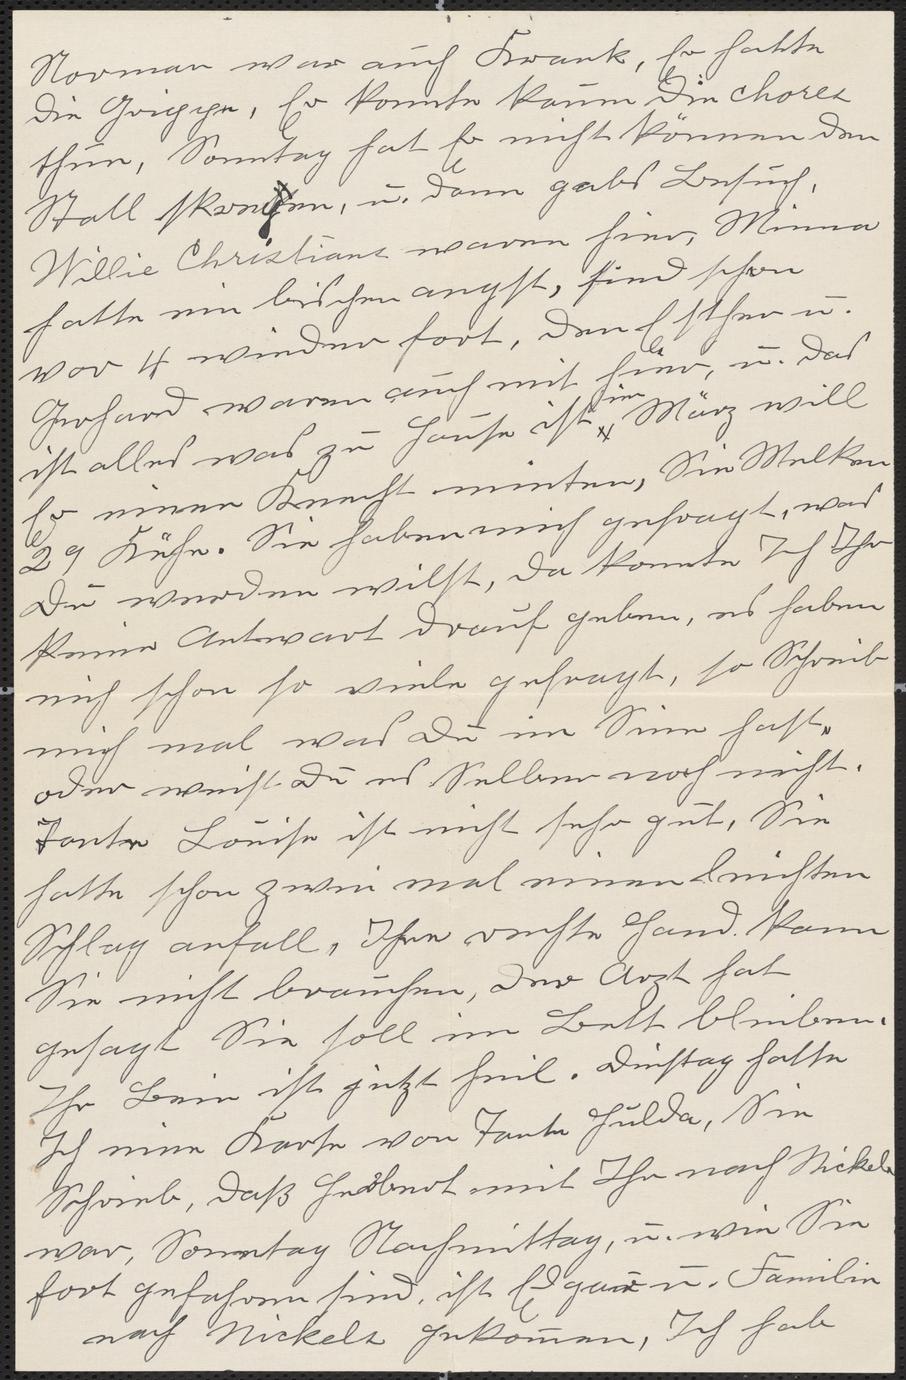 Norman war auch Krank, Er hatte
die Grippe, Er konnte kaum die chores
thun, Sonntag hat Er nicht können den
Stall skrengen, u. dann gabs Besuch,
Willie Christians waren hier, Minna
hatte ein bischen angst, sind schon
vor 4 wieder fort, den Esther u.
Gerhard waren auch mit hier, u. das
ist alles was zu Hause ist, im März will
Er einen Knecht mieten, Sie Melken
29 Kühe. Sie haben mich gefragt, was
Du werden wilst, da konnte Ich Ihr
keine Antwart drauf geben, es haben
mich schon so viele gefragt, so Schreib
mich mal was Du im Sinn hast,
oder weist Du es Selber noch nicht.
Tante Louise ist nicht sehr gut, Sie
hatte schon zwei mal einen leichten
Schlag anfall, Ihre rechte Hand kann
Sie nicht brauchen, der Arzt hat
gesagt Sie soll im Bett bleiben.
Ihr Bein ist jetzt heil. Dinstag hatte
Ich eine Karte von Tante Hulda, Sie
Schrieb, daß Herbert mit Ihr nach Nickels
war, Sonntag Nachmittag, u. wie Sie
fort gefahren sind, ist Edgar u. Familie
nach Nickels gekomen, Ich hab